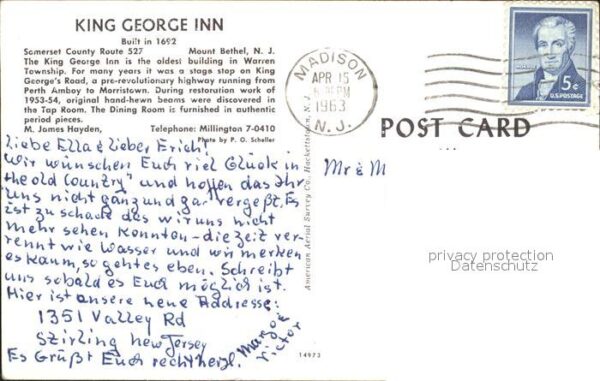 KING GEORGE INN
Built in 1692
Somerset County Route 527 Mount Bethel, N. J.
The King George Inn is the oldest building in Warren
Township. For many years it was a stage stop on King
George's Road, a pre-revolutionary highway running from
Perth Amboy to Morristown. During restoration work of
1953-54, original hand-hewn beams were discovered in
the Tap Room. The Dining Room is furnished in authentic
period pieces.
M. James Hayden, Telephone: Millington 7-0410
Photo by P. O. Scheller
Liebe Ella & Lieber Erich!
Wir wünschen Euch viel Glück in
the old Country" und hoffen das Ihr
uns nicht ganz und gar vergeßt. Es
ist zu schade das wir uns nicht
mehr sehen konnten - die Zeit ver-
rennt wie Wasser und wir merken
es kaum, so gehts eben. Schreibt
uns sobald es Euch möglich ist.
Hier ist unsere neue Addresse:
1351 Valley Rd
Stirling New Jersey
Es Grüßt Euch recht herzl.
Victor
American Aerial Survey Co. Hackettstown, N. J.
14973
MADISON
APR 15
PM
1963
N. J.
5¢
U.S. POSTAGE
POST CARD
Mr & M
privacy protection
Datenschutz